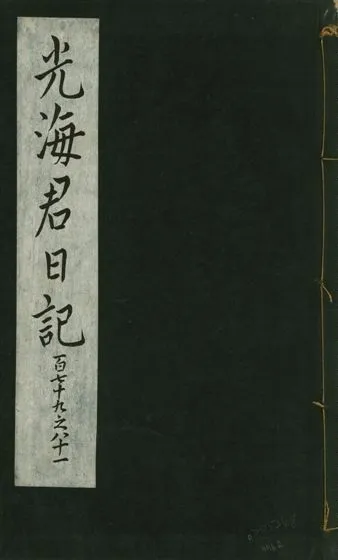 光海君日記
百七十九之八十一